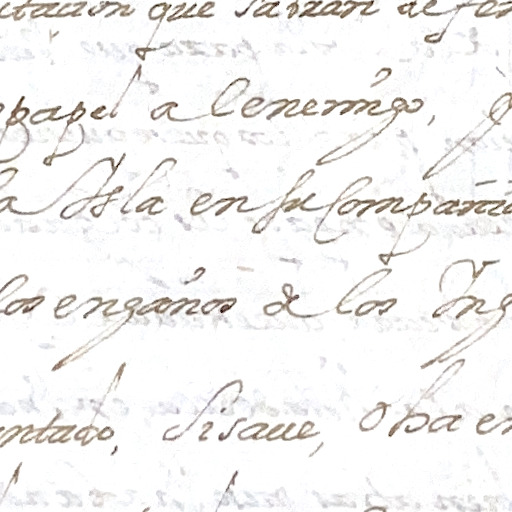 que sabran defen
papel al enemigo,
la Isla en su Compañia
los engaños de los Ing
ntado, si save, o ha en